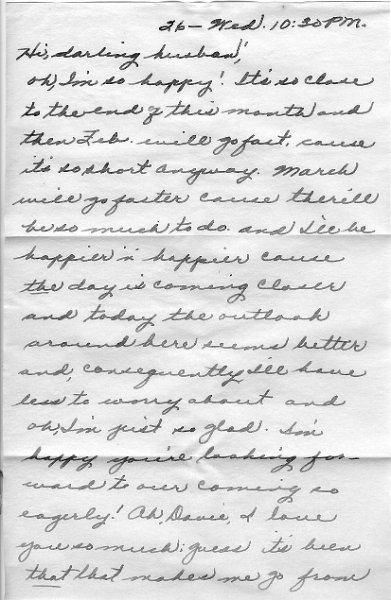 26 - Wed. 10:30 P.M.
Hi, darling husband!
Oh, I'm so happy! It's so close
to the end of this month and
then Feb. will go fast, cause
it's so short anyway. March
will go faster cause there'll
be so much to do. and I'll be
happier 'n' happier cause
the day is coming closer
and today the outlook
around here seems better
and, consequently I'll have
less to worry about and
oh, I'm just so glad. I'm
happy you're looking for-
ward to our coming so
eagerly! Ah, Dave, I love
you so much; guess it's been
that that makes me go from